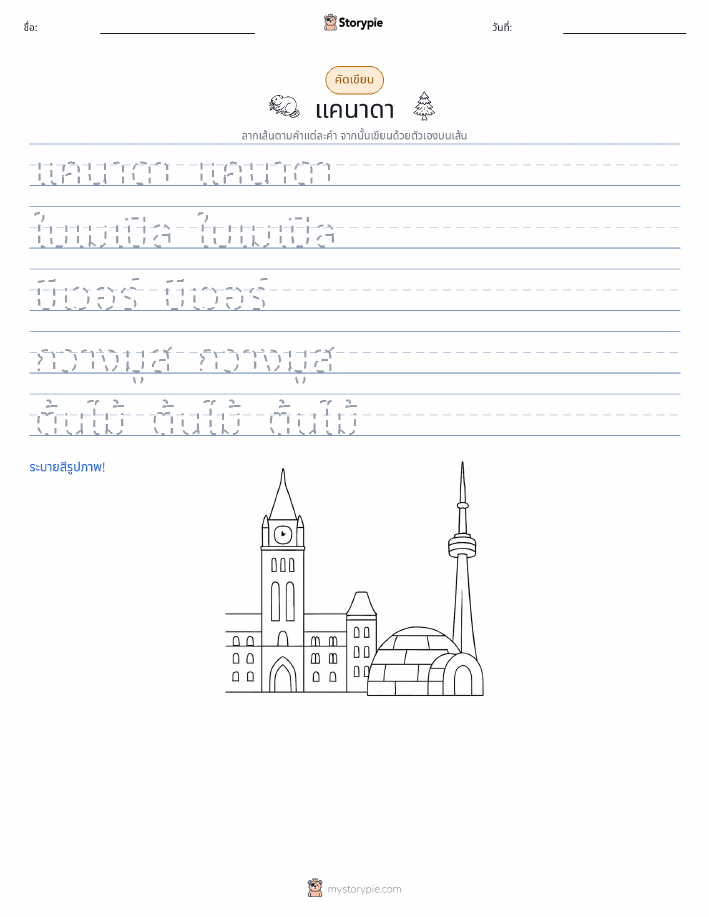 ชื่อ: Storypie วันที่:
คัดเขียน
แคนาดา
ลากเส้นตามคำแต่ละคำ จากนั้นเขียนด้วยตัวเองบนเส้น
แคนาดา แคนาดา
ใบเมเปิล ใบเมเปิล
บีเวอร์ บีเวอร์
กวางมูส กวางมูส
ต้นไม้ ต้นไม้ ต้นไม้
ระบายสีรูปภาพ!
mystorypie.com